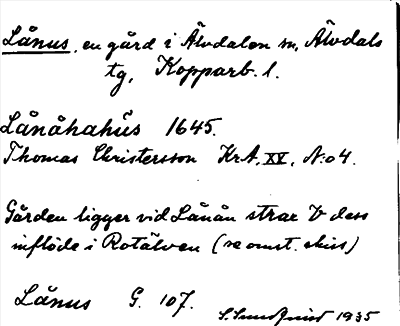 Lånus, en gård i Älvdalen sn, Älvdals
tg, Kopparb. l.
Lånåhahūs 1645.
Thomas Christersson KrA, XV, No 4.
Gården ligger vid Lånån strax V dess
inflöde i Rotälven (se omst. skiss)
Lånus G. 107.
S. Sundqvist 1935